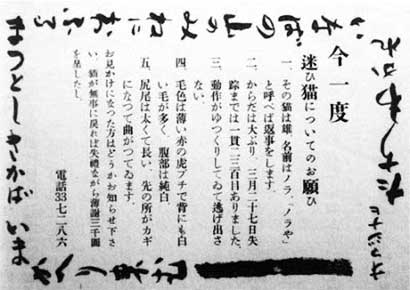 オマジナヒ
たちわかれ
いなばの山のみねにおふる
まつとしきかば いま
かへり来む
今一度
迷ひ猫についてのお願ひ
一、その猫は雄、名前はノラ。「ノラや」
と呼べば返事をします。
二、からだは大ぶり、三月二十七日失
踪までは一貫二三百目ありました。
三、動作がゆつくりしてゐて逃げ出さ
ない。
四、毛色は薄い赤の虎ブチで背にも白
い毛が多く、腹部は純白
五、尻尾は太くて長い、先の所がカギ
になつて曲がつてゐます。
お見かけになつた方はどうかお知らせ下さ
い、猫が無事に戻れば失礼ながら薄謝三千圓
を呈したし。
電話33七二八六